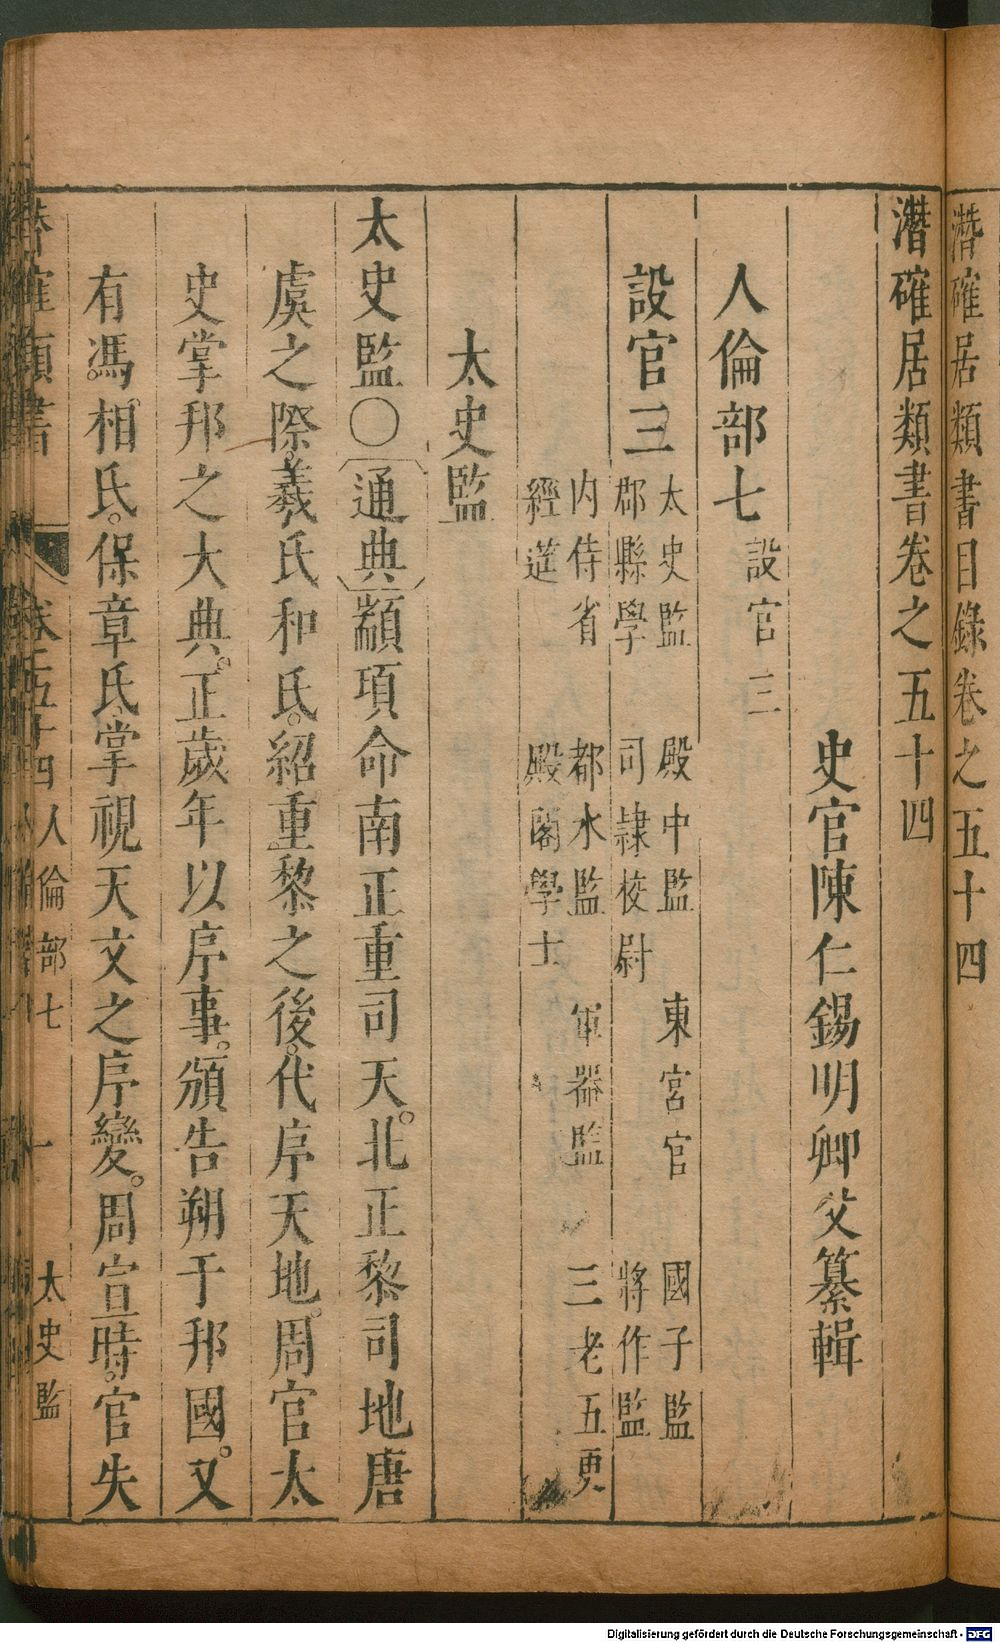 潛確居類書目錄卷之五十四
潛確居類書卷之五十四
史官陳仁錫明卿父纂輯
人倫部七 設官三
設官三
太史監 殿中監 東宮官 國子監
郡縣學 司隷校尉 將作監
内侍省 都水監 軍器監 三老五更
經莚 殿閣學士
太史監
太史監〇〔通典〕顓頊命南正重司天。北正黎司地唐
虞之際。羲氏和氏。紹重黎之後。代序天地。周官太
史掌邦之大典。正歲年以序事。頒告朔于邦國。又
有馮。相氏。保章氏掌視天文之序變。周宣時。官失
潛確類書 卷之五十四 人倫部七 一 太史監
Digitalisierung gefördert durch die Deutsche Forschungsgemeinschaft - DFG